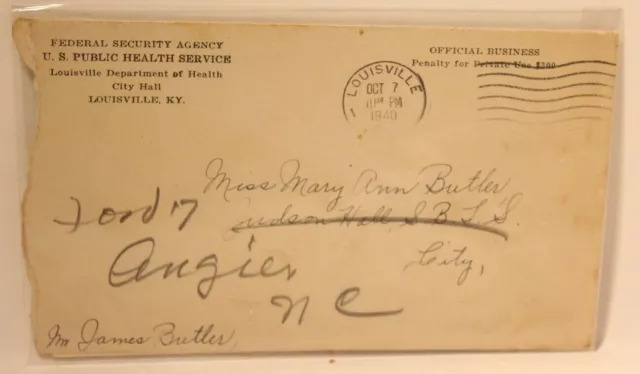 FEDERAL SECURITY AGENCY
U. S. PUBLIC HEALTH SERVICE
Louisville Department of Health
City Hall
LOUISVILLE, KY.
OFFICIAL BUSINESS
Penalty for Private Use $300
LOUISVILLE
OCT 7
PM
1940
Miss Mary Ann Butler
Judson Hall, S B T S.
City,
Angier
N C
James Butler,